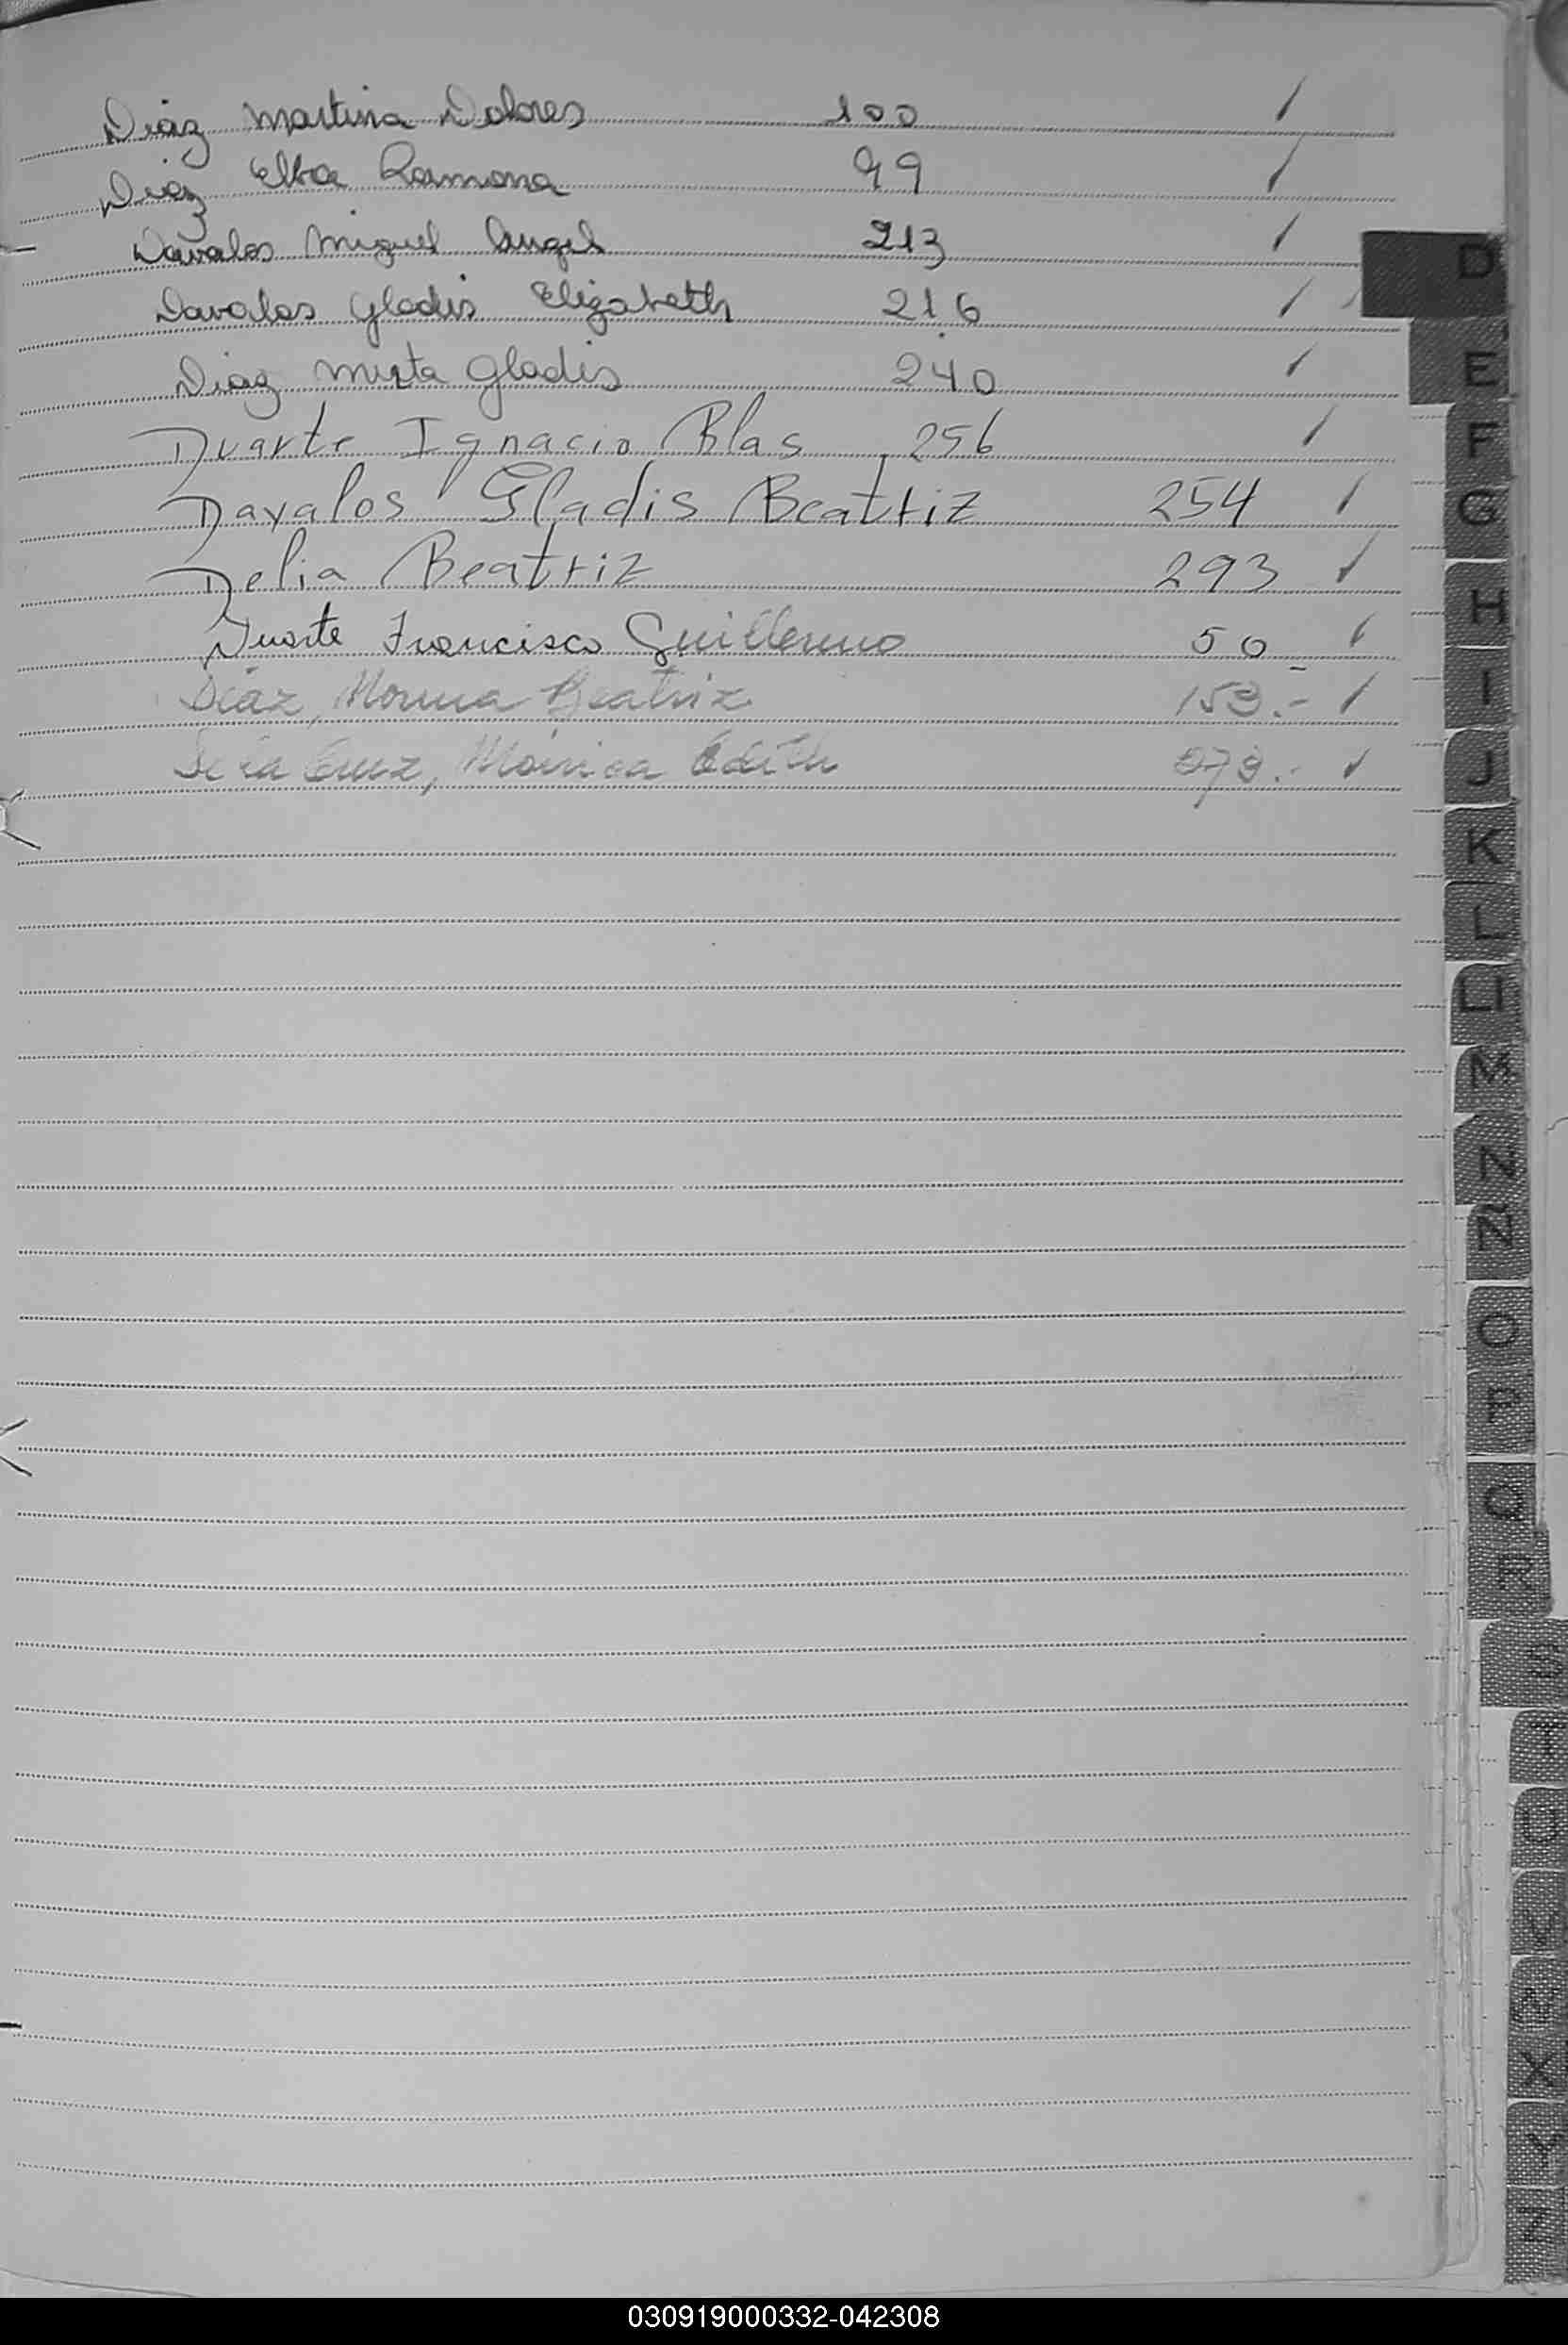 Diaz Martina Dolores 100 /
Diaz Elba Ramona 99 /
Davalos Miguel Angel 213 /
Davalos Gladis Elizabeth 216 /
Diaz Mirta Gladis 240 /
Duarte Ignacio Blas 256 /
Davalos Gladis Beatriz 254 /
Delia Beatriz 293 /
Duarte Francisco Guillermo 50 - /
Diaz, Norma Beatriz 159.- /
De la Cruz, Mónica Edith /
D
E
F
G
H
I
J
K
L
Ll
M
N
Ñ
O
P
Q
R
S
T
U
V
X
Y
Z
030919000332-042308